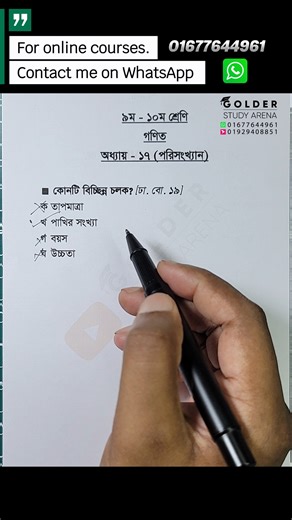 For online courses. 01677644961
Contact me on WhatsApp
GOLDER
STUDY ARENA
01677644961
01929408851
৯ম - ১০ম শ্রেণি
গণিত
অধ্যায় - ১৭ (পরিসংখ্যান)
কোনটি বিচ্ছিন্ন চলক? [ঢা. বো. ১৯]
ক তাপমাত্রা
খ পাখির সংখ্যা
গ বয়স
ঘ উচ্চতা